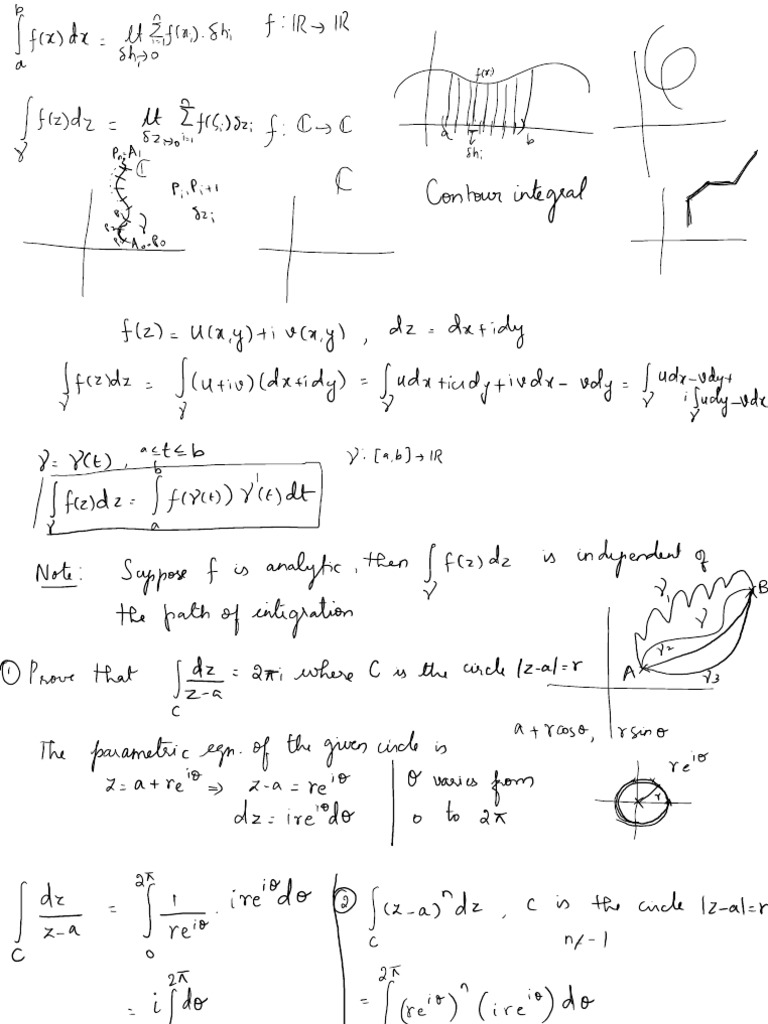 ∫_a^b f(x) dx = lt_{δh_i→0} Σ_{i=1}^n f(x_i) . δh_i   f : ℝ → ℝ
f(x)
a   δh_i   b
∫_γ f(z) dz = lt_{δz_i→0} Σ_{i=1}^n f(ζ_i) δz_i   f : ℂ → ℂ
P_n, A_1
ℂ
P_i, P_{i+1}
δz_i
γ
A_0 = P_0
ℂ
Contour integral
f(z) = u(x,y) + i v(x,y) , dz = dx + idy
∫_γ f(z) dz = ∫_γ (u+iv) (dx+idy) = ∫_γ udx + iudy + ivdx - vdy = ∫_γ udx - vdy + i∫_γ udy - vdx
γ = γ(t) , a ≤ t ≤ b   γ : [a,b] → ℝ
∫_γ f(z) dz = ∫_a^b f(γ(t)) γ'(t) dt
Note: Suppose f is analytic, then ∫_γ f(z) dz is independent of
the path of integration
γ_1   B
γ
γ_2
A   γ_3
① Prove that ∫_C dz/(z-a) = 2πi where C is the circle |z-a|=r
a + r cos θ, r sin θ
The parametric eqn. of the given circle is
z = a + re^{iθ} ⇒ z-a = re^{iθ}
dz = ire^{iθ} dθ
θ varies from
0 to 2π
re^{iθ}
r
∫_C dz/(z-a) = ∫_0^{2π} 1/(re^{iθ}) . ire^{iθ} dθ
= i ∫^{2π} dθ
② ∫_C (z-a)^n dz , C is the circle |z-a|=r
n≠-1
= ∫^{2π} (re^{iθ})^n (ire^{iθ}) dθ